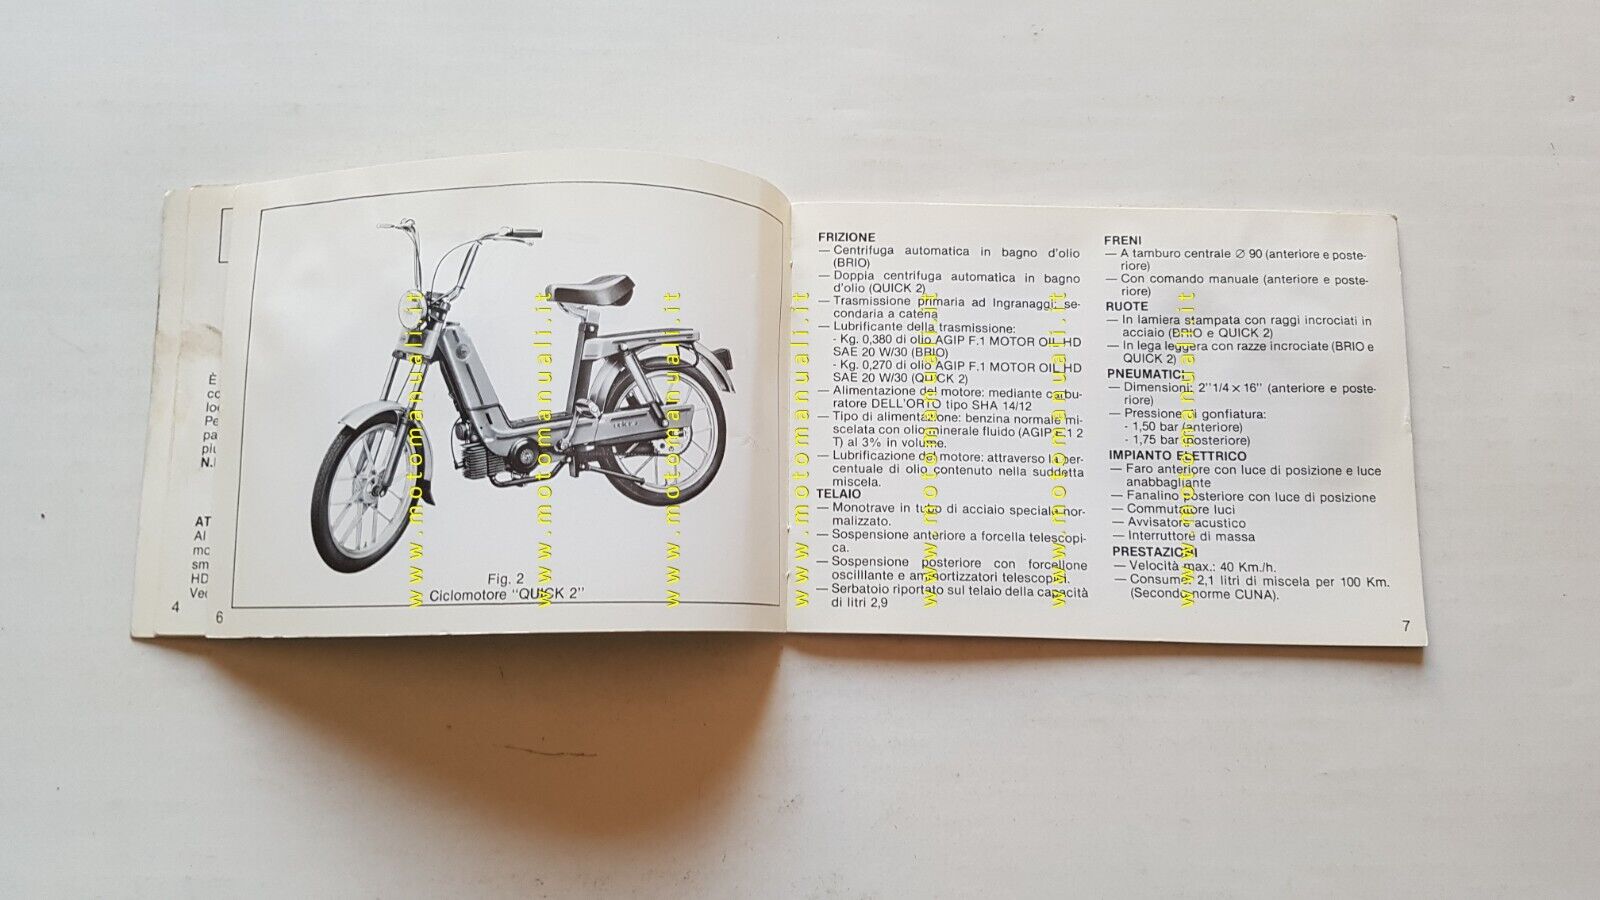 È
co
loc
Pe
pa
plu
N.I
AT
Al
mo
sm
HD
Ved
4
6
Fig. 2
Ciclomotore "QUICK 2"
www.motomanuali.it
www.motomanuali.it
www.motomanuali.it
FRIZIONE
— Centrifuga automatica in bagno d'olio
(BRIO)
— Doppia centrifuga automatica in bagno
d'olio (QUICK 2)
— Trasmissione primaria ad Ingranaggi; se-
condaria a catena
— Lubrificante della trasmissione:
- Kg. 0,380 di olio AGIP F.1 MOTOR OIL HD
SAE 20 W/30 (BRIO)
- Kg. 0,270 di olio AGIP F.1 MOTOR OIL HD
SAE 20 W/30 (QUICK 2)
— Alimentazione del motore: mediante carbu-
ratore DELL'ORTO tipo SHA 14/12
— Tipo di alimentazione: benzina normale mi-
scelata con olio minerale fluido (AGIP F.1 2
T) al 3% in volume.
— Lubrificazione del motore: attraverso la per-
centuale di olio contenuto nella suddetta
miscela.
TELAIO
— Monotrave in tubo di acciaio speciale nor-
malizzato.
— Sospensione anteriore a forcella telescopi-
ca.
— Sospensione posteriore con forcellone
oscilllante e ammortizzatori telescopici.
— Serbatoio riportato sul telaio della capacità
di litri 2,9
FRENI
— A tamburo centrale ∅ 90 (anteriore e poste-
riore)
— Con comando manuale (anteriore e poste-
riore)
RUOTE
— In lamiera stampata con raggi incrociati in
acciaio (BRIO e QUICK 2)
— In lega leggera con razze incrociate (BRIO e
QUICK 2)
PNEUMATICI
— Dimensioni: 2"1/4 x 16" (anteriore e poste-
riore)
— Pressione di gonfiatura:
- 1,50 bar (anteriore)
- 1,75 bar (posteriore)
IMPIANTO ELETTRICO
— Faro anteriore con luce di posizione e luce
anabbagliante
— Fanalino posteriore con luce di posizione
— Commutatore luci
— Avvisatore acustico
— Interruttore di massa
PRESTAZIONI
— Velocità max.: 40 Km./h.
— Consumo: 2,1 litri di miscela per 100 Km.
(Secondo norme CUNA).
7
www.motomanuali.it
www.motomanuali.it
www.motomanuali.it
www.motomanuali.it